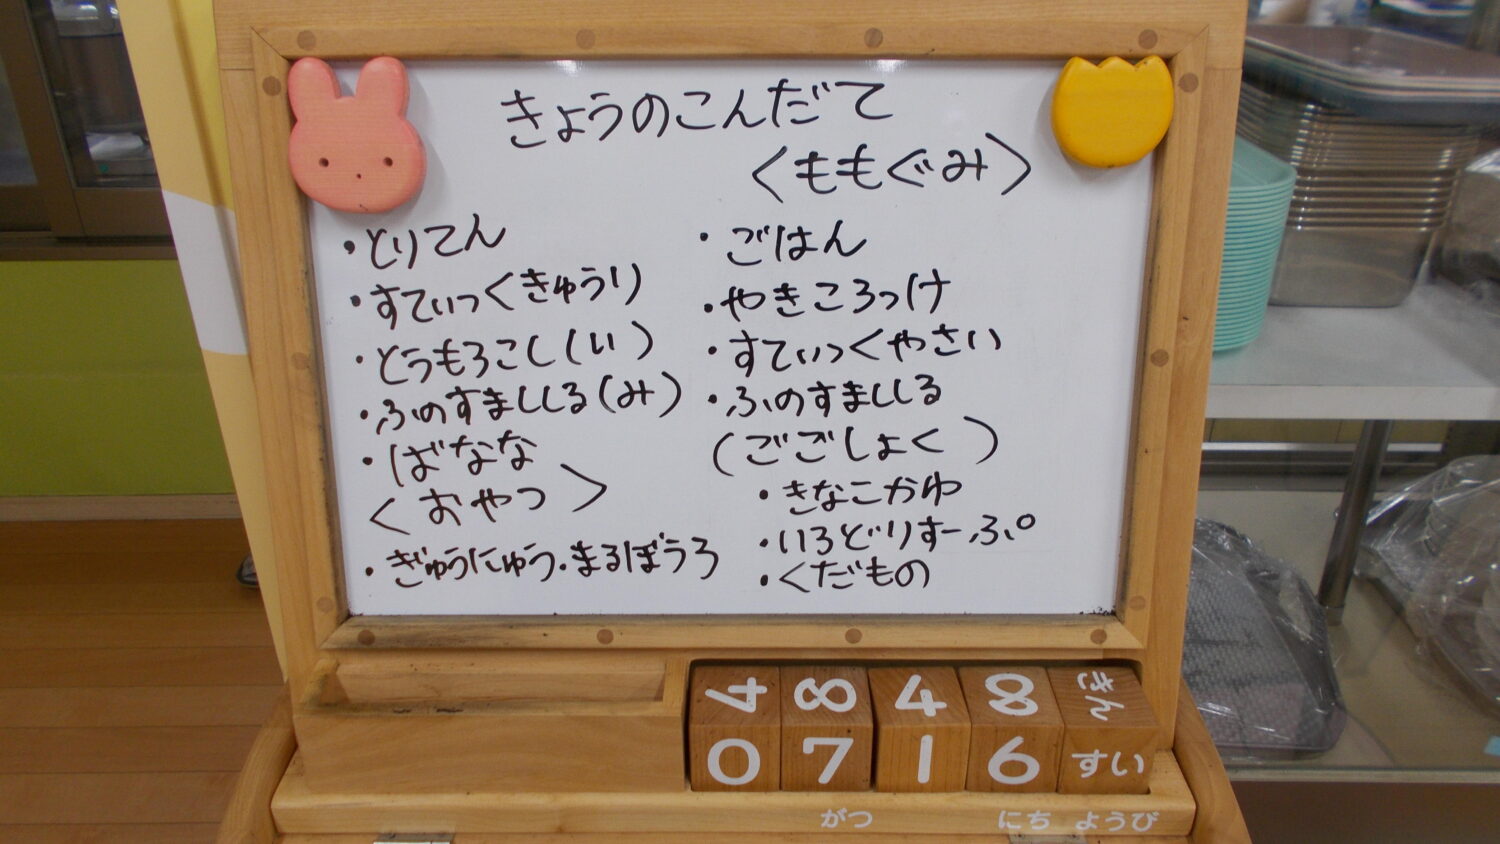 きょうのこんだて
＜ももぐみ＞
・とりてん
・すてぃっくきゅうり
・とうもろこし(い)
・ふのすましじる(み)
・ばなな
＜おやつ＞
・ぎゅうにゅう・まるぼうろ
・ごはん
・やきころっけ
・すてぃっくやさい
・ふのすましじる
(ごごしょく)
・きなこかゆ
・いろどりすーぷ
・くだもの
4 8 4 8 きん
0 7 1 6 すい
がつ にち ようび